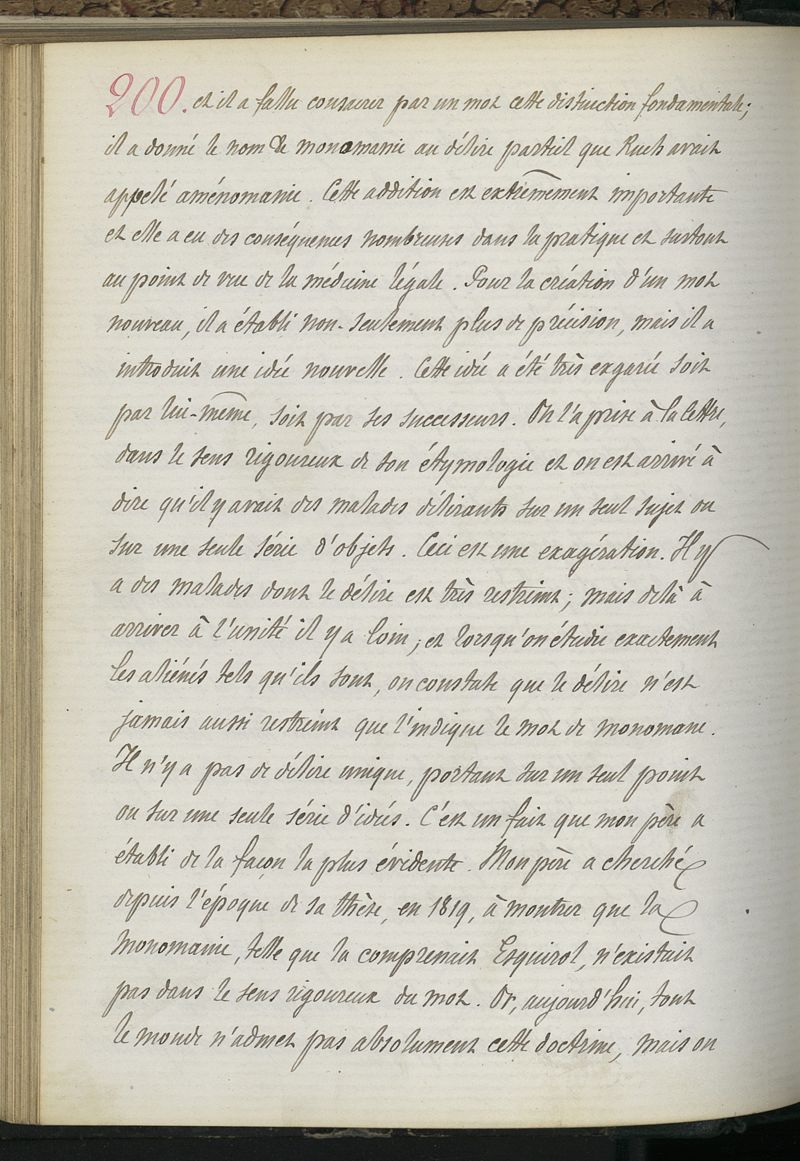 200. et il a fallu consacrer par un mot cette distinction fondamentale;
il a donné le nom de monomanie au délire partiel que Rush avait
appelé aménomanie. Cette addition est extrêmement importante
et elle a eu des conséquences nombreuses dans la pratique et surtout
au point de vue de la médecine légale. Pour la création d'un mot
nouveau, il a établi non-seulement plus de précision, mais il a
introduit une idée nouvelle. Cette idée a été très exgarée soit
par lui-même, soit par ses successeurs. On l'a prise à la lettre,
dans le sens rigoureux de son étymologie et on est arrivé à
dire qu'il y avait des malades délirants sur un seul sujet ou
sur une seule série d'objets. Ceci est une exagération. Il y
a des malades dont le délire est très restreint; mais delà à
arriver à l'unité il y a loin; et lorsqu'on étudie exactement
les aliénés tels qu'ils sont, on constate que le délire n'est
jamais aussi restreint que l'indique le mot de monomane.
Il n'y a pas de délire unique, portant sur un seul point
ou sur une seule série d'idées. C'est un fait que mon père a
établi de la façon la plus évidente. Mon père a cherché
depuis l'époque de sa thèse, en 1819, à montrer que la
Monomanie, telle que la comprenait Esquirol, n'existait
pas dans le sens rigoureux du mot. Or, aujourd'hui, tout
le monde n'admet pas absolument cette doctrine, mais on